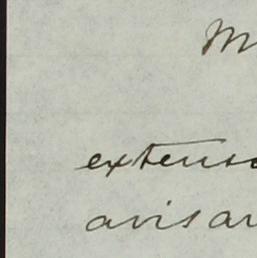 M
extens
avisar